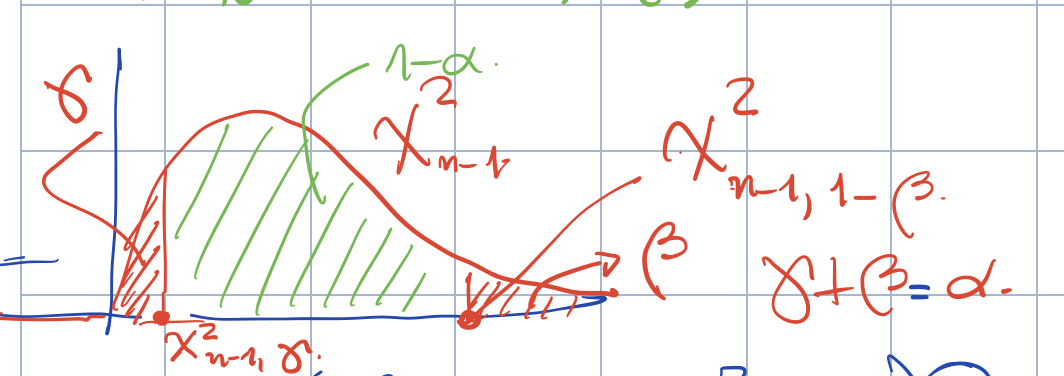 1-α.
γ
χ²ₙ₋₁
χ²ₙ₋₁, ₁₋β.
β
γ+β=α.
χ²ₙ₋₁, γ.